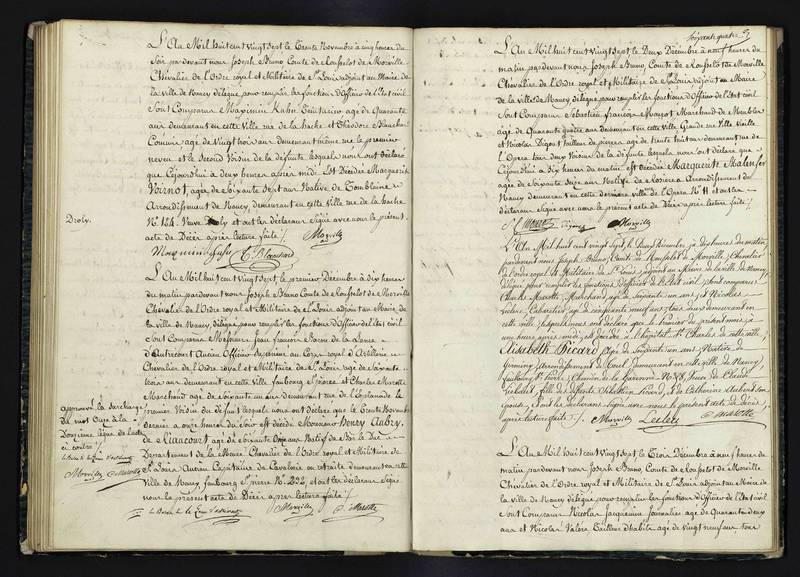 L'An Mil huit cent vingt sept le Trente Novembre à cinq heures du
Soir par devant nous Joseph Bruno Comte de Rousselot de Morville
Chevalier de l'Ordre royal et Militaire de St Louis adjoint au Maire de
la ville de Nancy délégué pour remplir les fonctions d'Officier de l'État civil
Sont Comparus Maximin Kuhn Teinturier agé de Quarante
ans demeurant en cette Ville rue de la hache et Théodore Blanchard
Commis agé de Vingt trois ans demeurant même rue le premier
neveu et le Second Voisin de la défunte lesquels nous ont déclaré
que Cejourd'hui à deux heures après midi Est Décédée Marguerite
Voirnot, agée de Soixante Sept ans Native de Tomblaine
Arrondissement de Nancy, demeurant en cette Ville rue de la hache
Droly.
N° 124. Veuve Droly et ont les déclarans Signé avec nous le présent
acte de Décès après lecture faite /.
Morville
T. Blanchard
L'An Mil huit cent vingt Sept le premier Décembre à Dix heures
du matin par devant nous Joseph Bruno Comte de Rousselot de Morville
Chevalier de l'Ordre royal et Militaire de St Louis adjoint au Maire de
la ville de Nancy délégué pour remplir les fonctions d'Officier de l'État civil
Sont Comparus Messieurs Jean françois
d'Autrecourt Ancien Officier Supérieur au Corps royal d'Artillerie
Chevalier de l'Ordre royal et Militaire de St Louis agé de Soixante
trois ans demeurant en cette Ville faubourg St pierre et Charles Marotte
Marchand agé de Soixante un ans demeurant rue de l'Esplanade le
premier Voisin du défunt lesquels nous ont déclaré que le Trente Novembre
dernier à onze heures du Soir est décédé Monsieur Henry Aubry,
de Rancourt agé de Soixante Onze ans Natif de Bar le Duc
Département de la Meuse Chevalier de l'Ordre royal et Militaire de
St Louis Ancien Capitaine de Cavalerie en retraite demeurant en cette
Ville de Nancy, faubourg St pierre N° 222, et ont les déclarans Signé
avec nous le présent acte de Décès après lecture faite /.
Morville
C. Marotte
approuvé la surcharge
du mot Onze à la
Douzième ligne de l'acte
ci contre /.
Morville
C. Marotte
Soixante quatre
L'An Mil huit cent vingt Sept le Deux Décembre à neuf heures du
matin par devant nous Joseph Bruno Comte de Rousselot de Morville
Chevalier de l'Ordre royal et Militaire de St Louis adjoint au Maire
de la ville de Nancy délégué pour remplir les fonctions d'Officier de l'État civil
Sont Comparus Sébastien françois Mougot Marchand de Meubles
agé de Quarante quatre ans demeurant en cette Ville Grande rue Ville Vieille
et Nicolas Tailleur de pierres agé de trente huit ans demeurant rue de
l'Opéra tous deux Voisins de la défunte lesquels nous ont déclaré que
Cejourd'hui à Six heures du matin est décédée Marguerite
agée de Soixante Onze ans Native de Rosières Arrondissement de
Nancy demeurant en cette dernière ville rue de l'Opéra N° 11 et ont les
déclarans Signé avec nous le présent acte de Décès après lecture faite /.
Morville
L'An Mil huit cent vingt Sept, le Deux Décembre à dix heures du matin,
pardevant nous Joseph Bruno, Comte de Rousselot de Morville, Chevalier
de l'ordre royal et Militaire de St Louis, adjoint au Maire de la ville de Nancy,
délégué pour remplir les fonctions d'Officier de l'État civil, Sont comparus
Charles Marotte, Marchand, agé de Soixante un ans, et Nicolas
Leclerc, Cabaretier agé de cinquante neuf ans, tous deux demeurant en
cette ville, lesquels nous ont déclaré que le premier du présent mois, à
une heure après midi, est décédée à l'hôpital St Charles de cette ville,
Elisabeth Picard, agée de Soixante un ans, Native de
Germiny, arrondissement de Toul, demeurant en cette ville de Nancy,
faubourg St Pierre, Chemin de la Garenne N° 28, Veuve de Claude
fille de défunts Sébastien Picard, et de Catherine Aubert son
épouse, et ont les déclarans Signé avec nous le présent acte de Décès,
après lecture faite /.
Morville
Leclerc
C. Marotte
L'An Mil huit cent vingt Sept le Trois Décembre à neuf heures du
matin par devant nous Joseph Bruno Comte de Rousselot de Morville
Chevalier de l'Ordre royal et Militaire de St Louis adjoint au Maire de
la Ville de Nancy délégué pour remplir les fonctions d'Officier de l'État civil
Sont Comparus Nicolas Jacquemin Journalier agé de Quarante deux
ans et Nicolas Valory Tailleur d'habits agé de Vingt neuf ans, tous